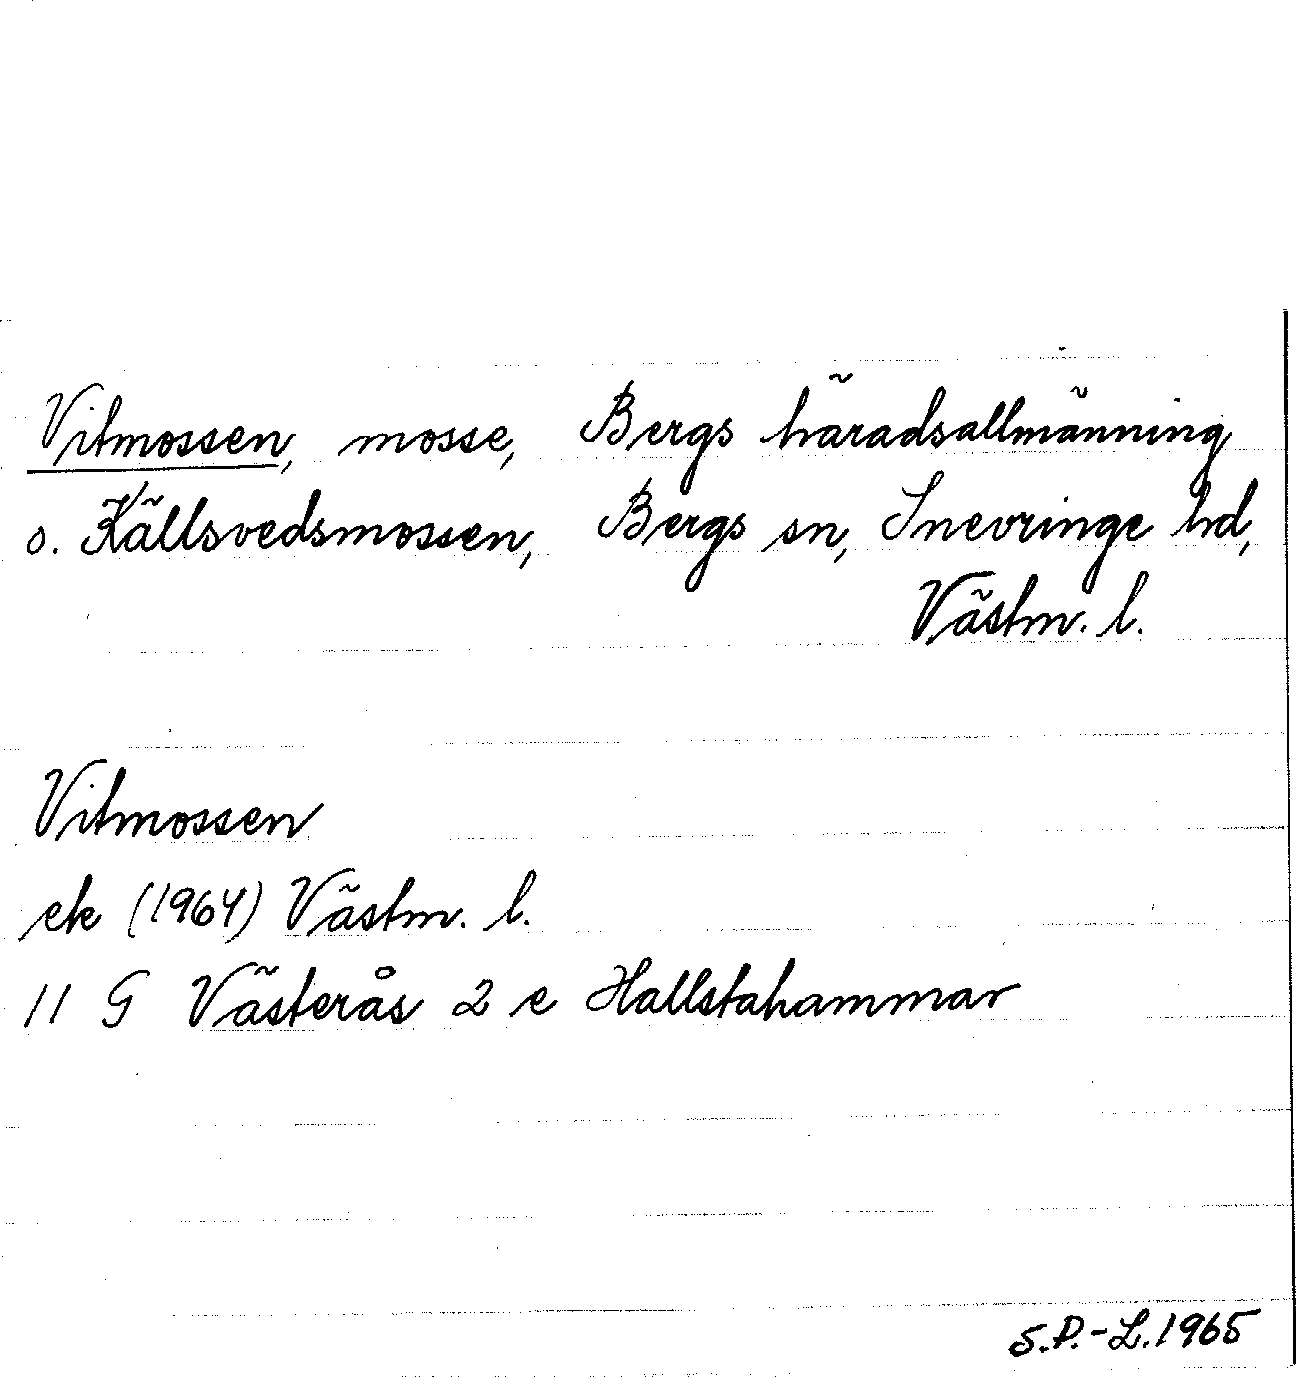 Vitmossen, mosse, Bergs häradsallmänning
o. Källsvedsmossen, Bergs sn, Snevringe hd,
Västm. l.
Vitmossen
ek (1964) Västm. l.
11 G Västerås 2 e Hallstahammar
S.P.-L. 1965